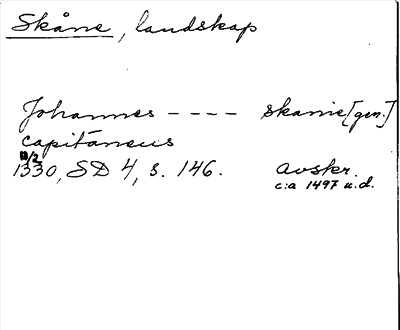 Skåne, landskap
Johannes - - - - skanie [gen.]
capitaneus
12/2
1330, SD 4, s. 146. Avskr.
c:a 1497 u.d.